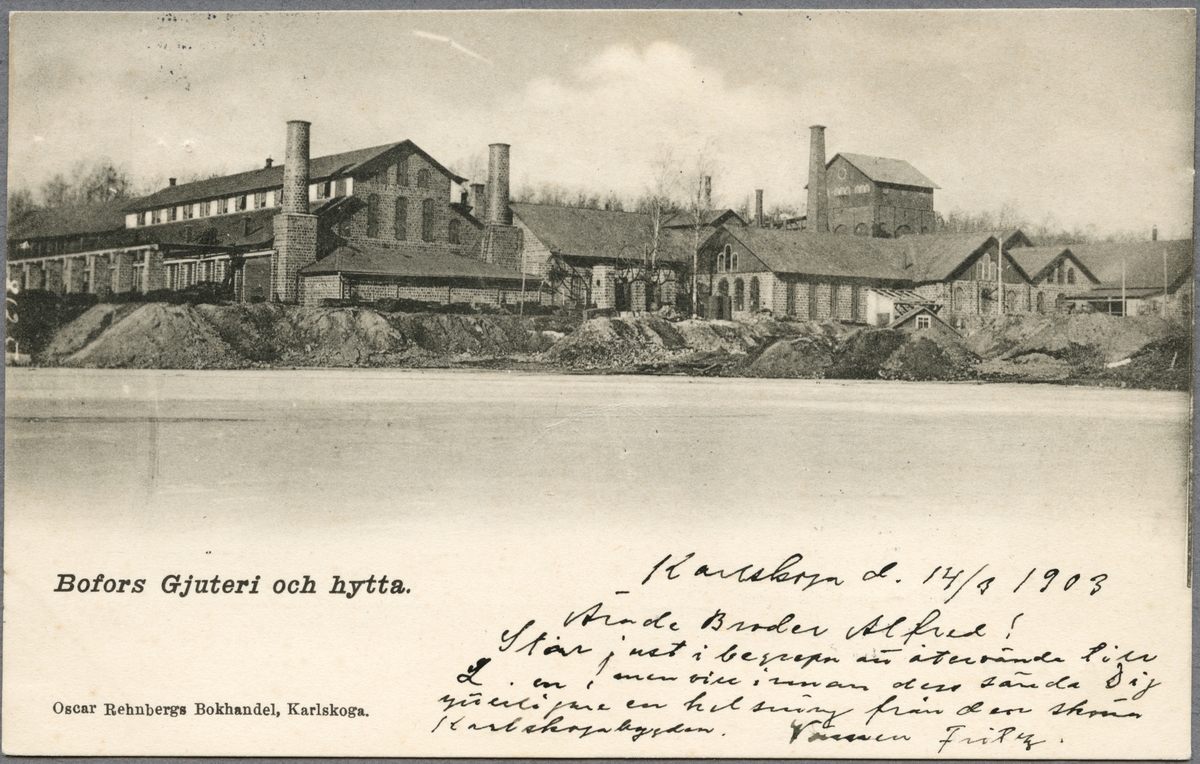 Bofors Gjuteri och hytta.
Oscar Rehnbergs Bokhandel, Karlskoga.
Karlskoga d. 14/3 1903
Ärade Broder Alfred!
Står just i begrepp att återvända till
men vill innan dess sända Dig
ytterligare en helsning från den sköna
Karlskogabygden. Vännen Fritz.